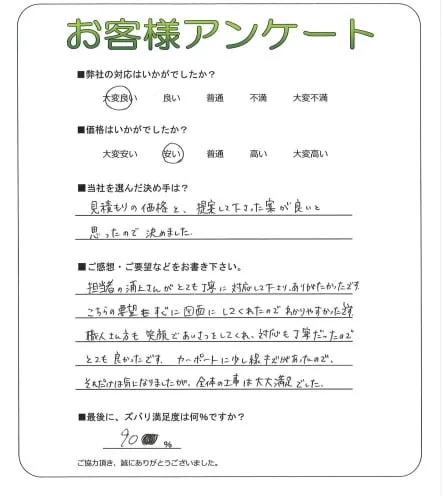 お客様アンケート
■弊社の対応はいかがでしたか？
大変良い 良い 普通 不満 大変不満
■価格はいかがでしたか？
大変安い 安い 普通 高い 大変高い
■当社を選んだ決め手は？
見積もりの価格と、提案して下さった案が良いと
思ったので決めました。
■ご感想・ご要望などをお書き下さい。
担当者の浦上さんがとても丁寧に対応して下さり、ありがたかったです。
こちらの要望もすぐに図面にしてくれたのでわかりやすかったです。
職人さん方も笑顔であいさつをしてくれ、対応も丁寧だったので
とても良かったです。カーポートに少し線キズがあったので、
それだけは気になりましたが、全体の工事は大大満足でした。
■最後に、ズバリ満足度は何％ですか？
90 %
ご協力頂き、誠にありがとうございました。